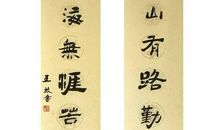 山有路勤
海無涯苦
王
書